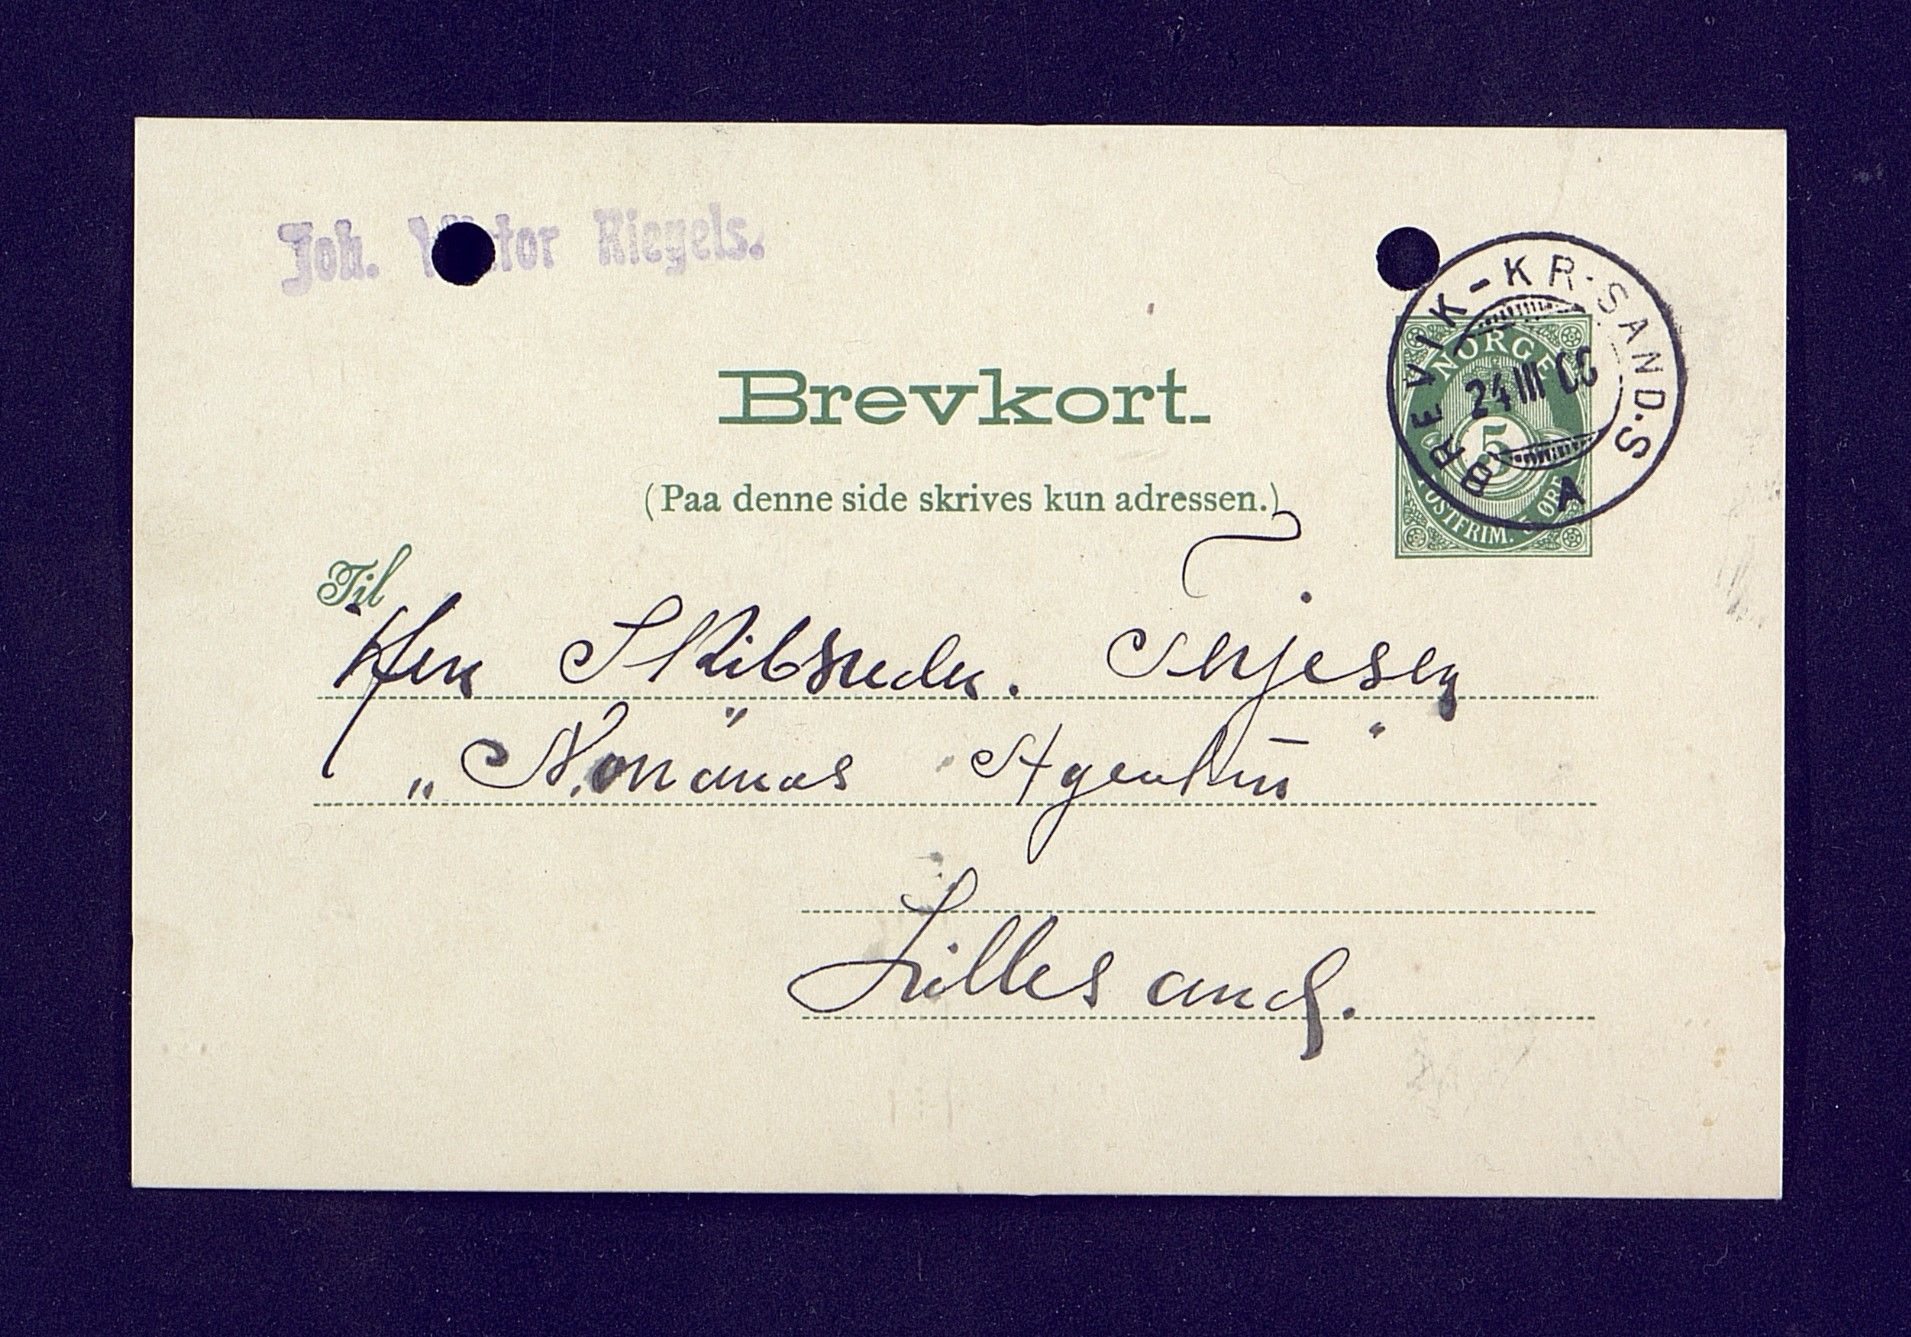 Joh. Viktor Riegels.
BREVIK-KR.SAND.S
24 III
A
NORGE
5
POSTFRIM. 5 ØRE
Brevkort.
(Paa denne side skrives kun adressen.)
Til
Herr Skibsreder. Terjesen
Agentur"
Lillesand.